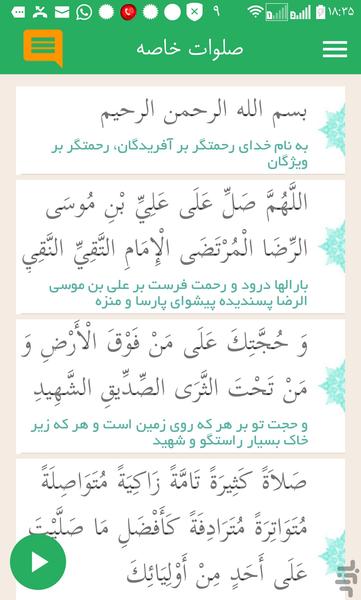 ۹ ۱۸:۳۵
صلوات خاصه
بسم الله الرحمن الرحیم
به نام خدای رحمتگر بر آفریدگان، رحمتگر بر
ویژگان
اللَّهُمَّ صَلِّ عَلَى عَلِيِّ بْنِ مُوسَى
الرِّضَا الْمُرْتَضَى الْإِمَامِ التَّقِيِّ النَّقِيِّ
بارالها درود و رحمت فرست بر علی بن موسی
الرضا پسندیده پیشوای پارسا و منزه
وَ حُجَّتِكَ عَلَى مَنْ فَوْقَ الْأَرْضِ وَ
مَنْ تَحْتَ الثَّرَى الصِّدِّيقِ الشَّهِيدِ
و حجت تو بر هر که روی زمین است و هر که زیر
خاک بسیار راستگو و شهید
صَلاَةً كَثِيرَةً تَامَّةً زَاكِيَةً مُتَوَاصِلَةً
مُتَوَاتِرَةً مُتَرَادِفَةً كَأَفْضَلِ مَا صَلَّيْتَ
عَلَى أَحَدٍ مِنْ أَوْلِيَائِكَ
بازار